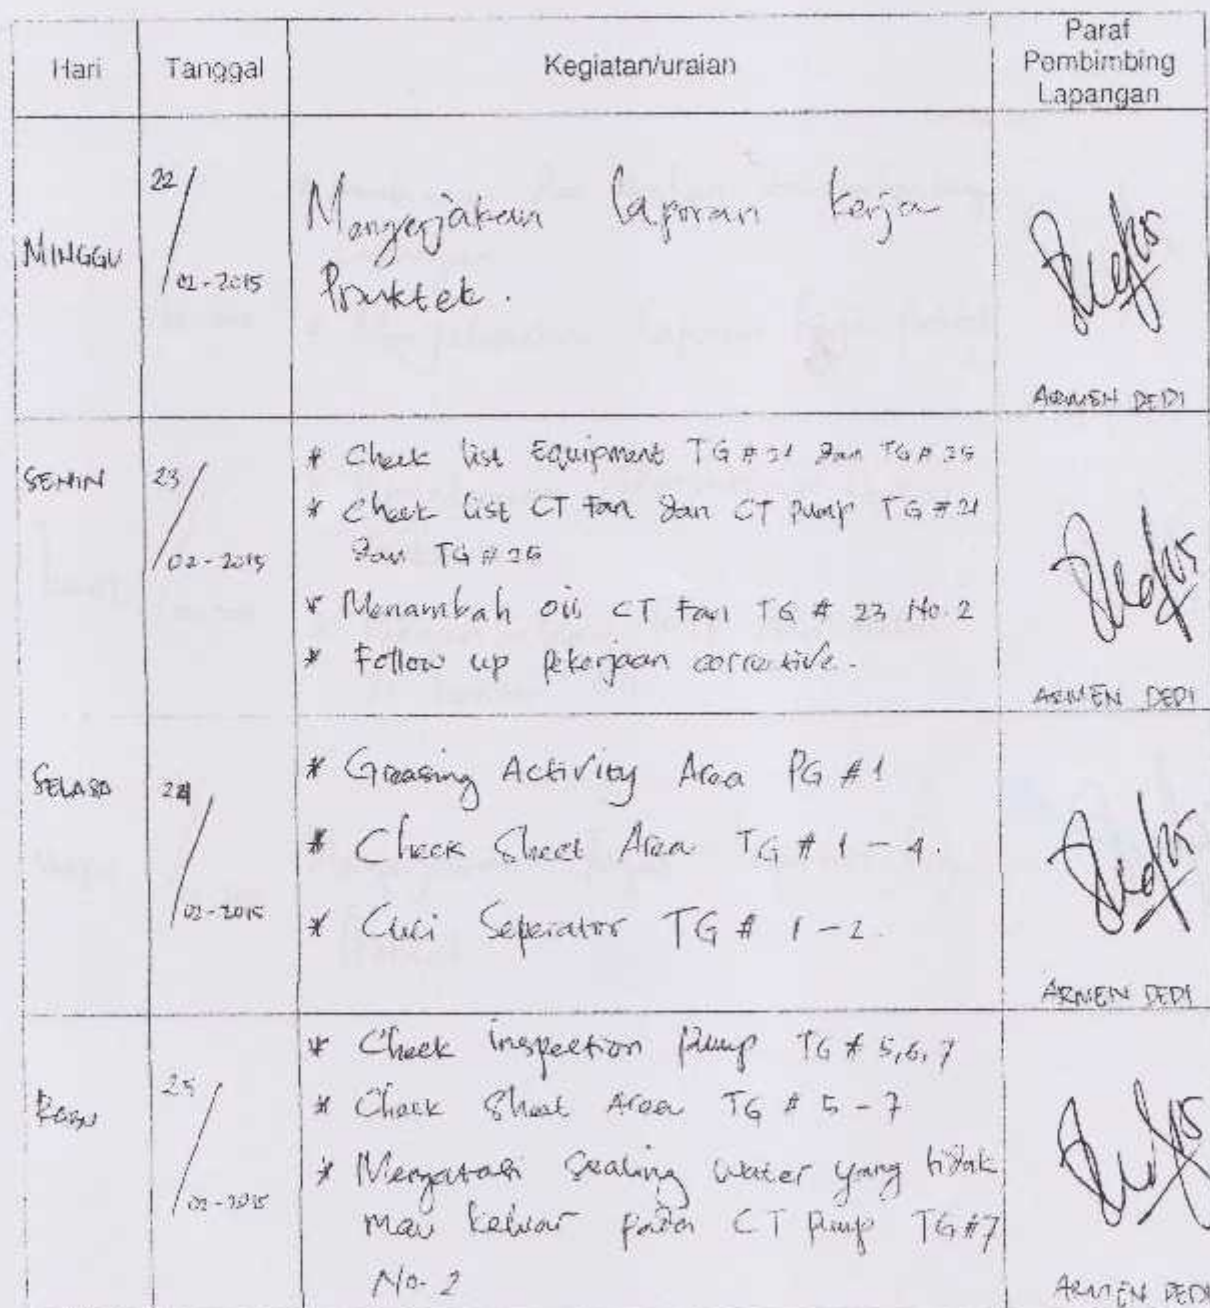 Hari Tanggal Kegiatan/uraian Paraf
Pembimbing
Lapangan
MINGGU 22/02-2015 Mengerjakan laporan kerja
Praktek.
ARMEN DEDI
SENIN 23/02-2015 * Check list Equipment TG # 21 dan TG # 25
* Check list CT Fan dan CT pump TG # 21
dan TG # 25
* Menambah oil CT Fan TG # 23 No. 2
* Follow up pekerjaan corrective.
ARMEN DEDI
SELASA 24/02-2015 * Greasing Activity Area PG # 1
* Check Sheet Area TG # 1 - 4.
* Cuci Seperator TG # 1 - 2.
ARMEN DEDI
RABU 25/02-2015 * Check inspection pump TG # 5,6,7
* Check Sheet Area TG # 5 - 7
* Mengatasi Sealing water yang tidak
mau keluar pada CT pump TG #7
No. 2
ARMEN DEDI